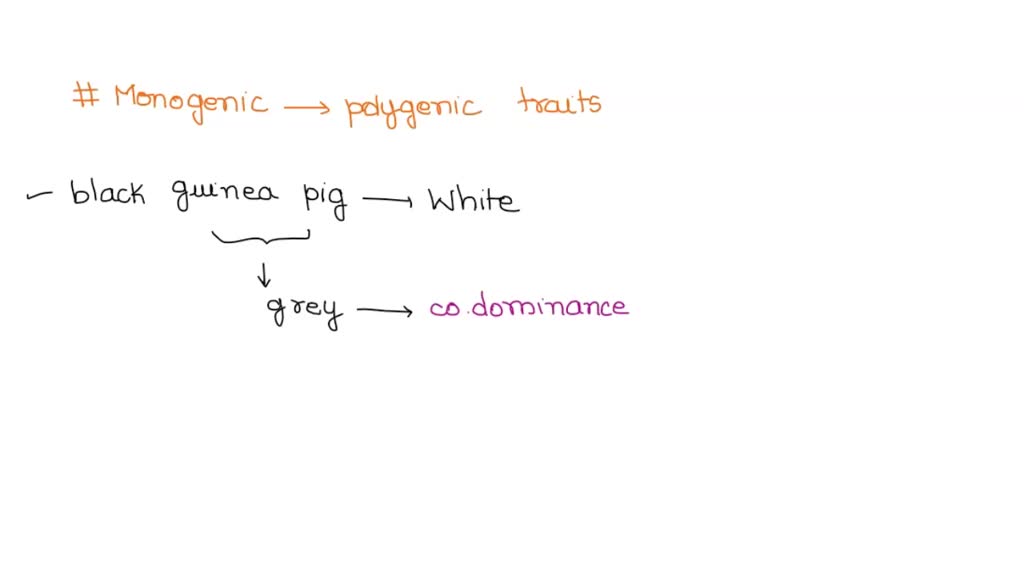 # Monogenic → polygenic traits
– black guinea pig → White
↓
grey → co.dominance